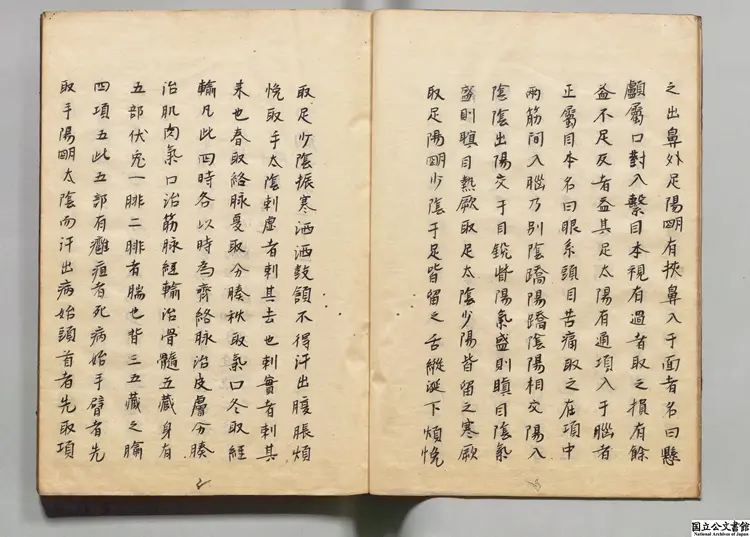 之出鼻外足陽明有挾鼻入于面者名曰懸
顱屬口對入繫目本視有過者取之損有餘
益不足反者益其足太陽有通項入于腦者
正屬目本名曰眼系頭目苦痛取之在項中
兩筋間入腦乃别陰蹻陽蹻陰陽相交陽入
陰陰出陽交于目銳眥陽氣盛則瞋目陰氣
盛則瞑目熱厥取足太陰少陽皆留之寒厥
取足陽明少陰于足皆留之舌縱涎下煩悗
取足少陰振寒洒洒鼓頷不得汗出腹脹煩
悗取手太陰刺虚者刺其去也刺實者刺其
来也春取絡脉夏取分腠秋取氣口冬取經
輸凡此四時各以時為齊絡脉治皮膚分腠
治肌肉氣口治筋脉經輸治骨髓五藏身有
五部伏兎一腓二腓者腨也背三五藏之腧
四項五此五部有癰疽者死病始手臂者先
取手陽明太陰而汗出病始頭首者先取項
国立公文書館
National Archives of Japan